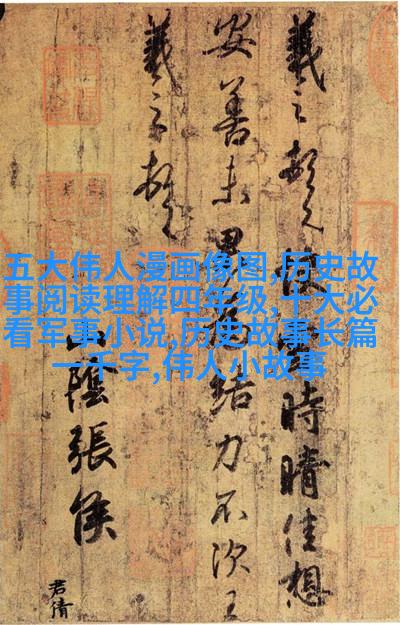 五大伟人漫画像图,历史故
事阅读理解四年级,十大必
看军事小说,历史故事长篇
一千字,伟人小故事
羲之頓首快時晴佳想
安善未果為結力不次王
羲之頓首
山陰張侯
君倩